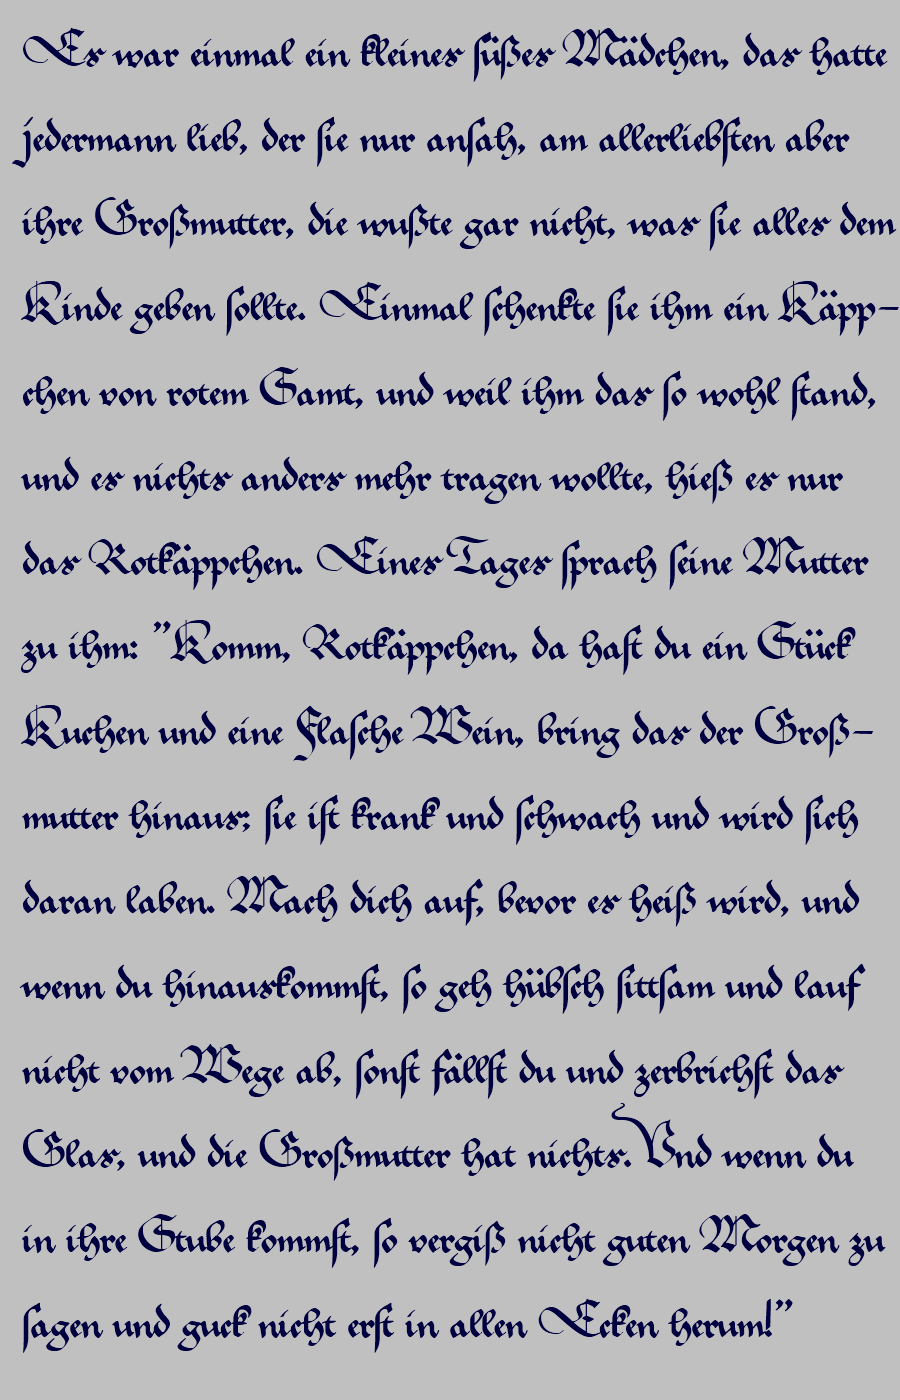 Es war einmal ein kleines ſüßes Mädchen, das hatte
jedermann lieb, der ſie nur anſah, am allerliebſten aber
ihre Großmutter, die wußte gar nicht, was ſie alles dem
Kinde geben ſollte. Einmal ſchenkte ſie ihm ein Käpp-
chen von rotem Samt, und weil ihm das ſo wohl ſtand,
und es nichts anders mehr tragen wollte, hieß es nur
das Rotkäppchen. Eines Tages ſprach ſeine Mutter
zu ihm: ”Komm, Rotkäppchen, da haſt du ein Stück
Kuchen und eine Flaſche Wein, bring das der Groß-
mutter hinaus; ſie iſt krank und ſchwach und wird ſich
daran laben. Mach dich auf, bevor es heiß wird, und
wenn du hinauskommſt, ſo geh hübſch ſittſam und lauf
nicht vom Wege ab, ſonſt fällſt du und zerbrichſt das
Glas, und die Großmutter hat nichts. Und wenn du
in ihre Stube kommſt, ſo vergiß nicht guten Morgen zu
ſagen und guck nicht erſt in allen Ecken herum!”